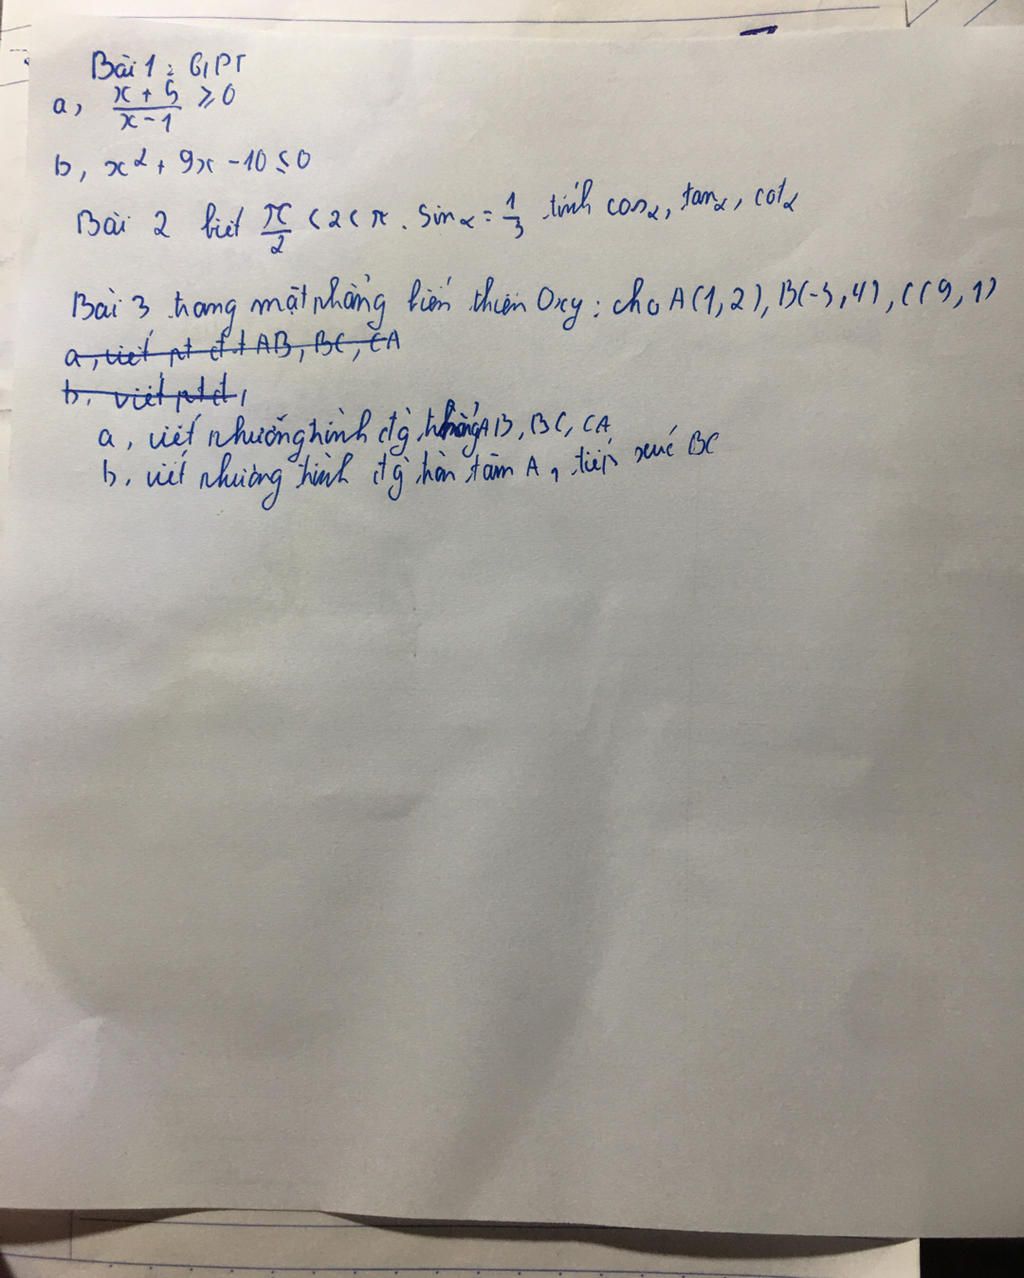 Bài 1: GPT
a, x + 5 / x - 1 ≥ 0
b, x² + 9x - 10 ≤ 0
Bài 2 biết π/2 < 2 < π. Sin α = 1/3 tính cos α, tan α, cot α
Bài 3 trong mặt phẳng biến thiên Oxy: cho A(1,2), B(-3,4), C(9,1)
a, viết pt đ.t AB, BC, CA
b. viết ptđ,
a, viết phương trình đg thẳng AB, BC, CA
b. viết phương trình đg tròn tâm A, tiếp xúc BC